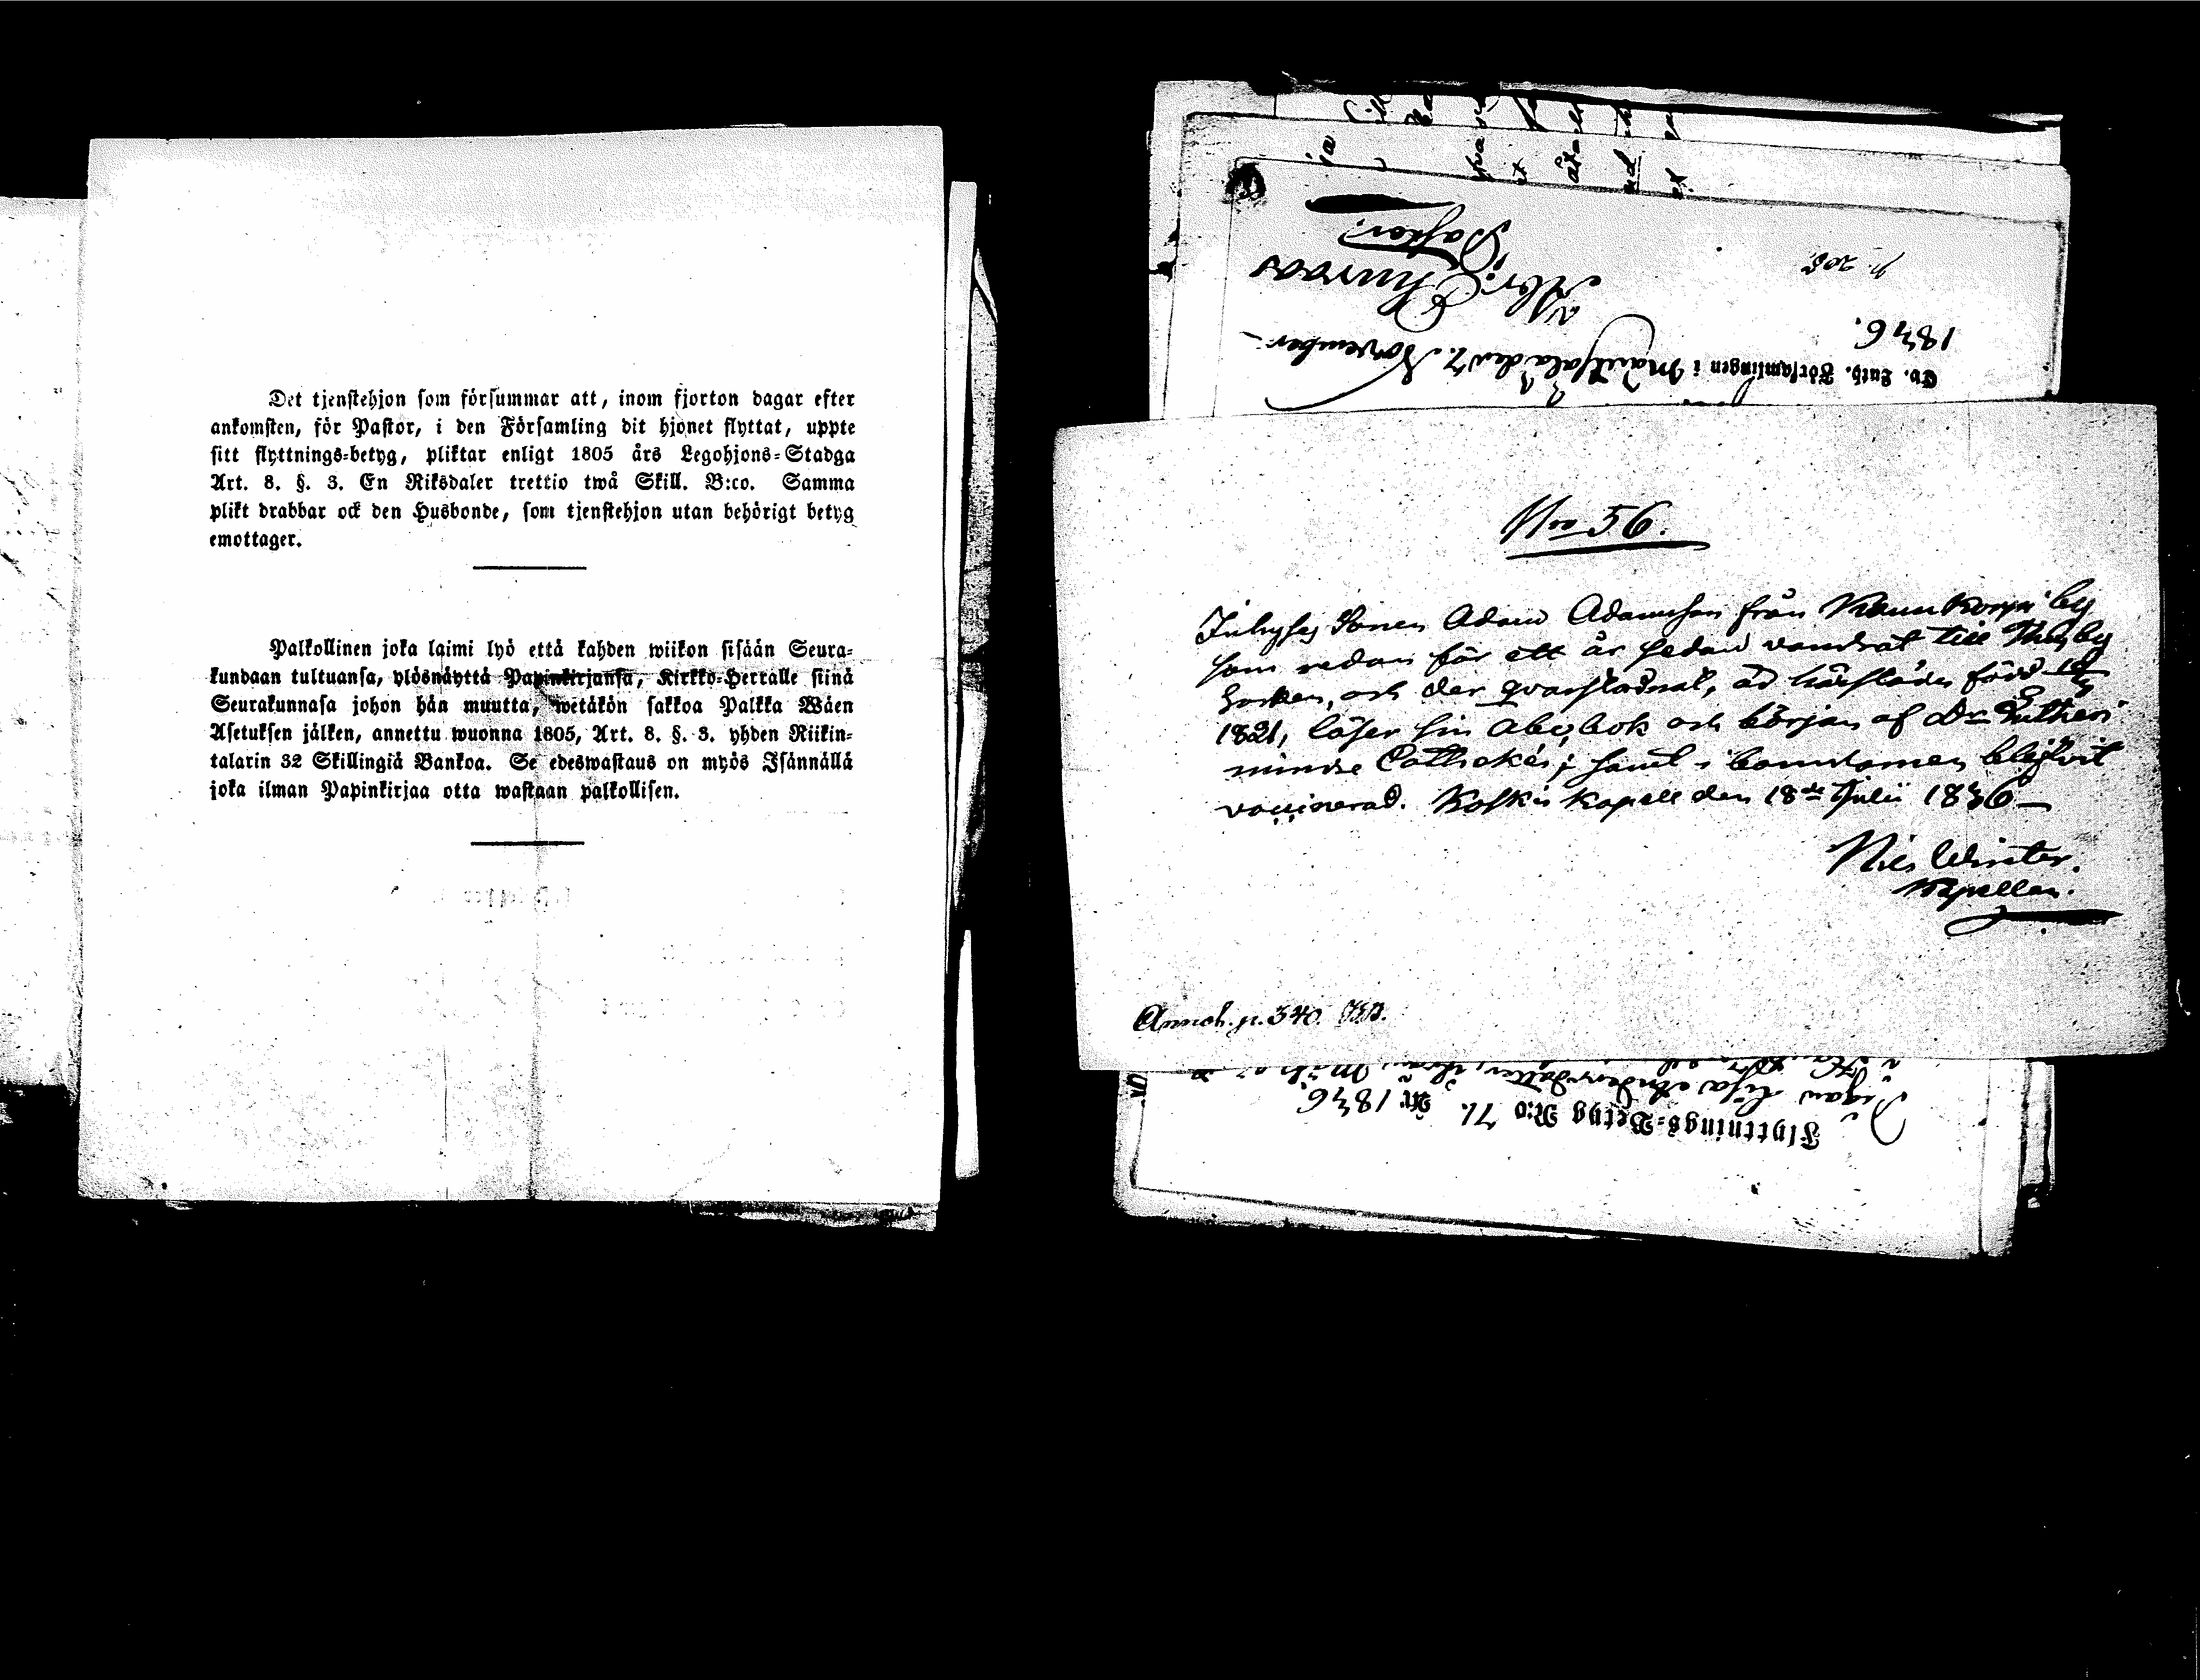 Det tjenstehjon som försummar att, inom fjorton dagar efter
ankomsten, för Pastor, i den Församling dit hjonet flyttat, uppte
sitt flyttnings-betyg, pliktar enligt 1805 års Legohjons-Stadga
Art. 8. §. 3. En Riksdaler trettio twå Skill. B:co. Samma
plikt drabbar ock den Husbonde, som tjenstehjon utan behörigt betyg
emottager.
Palkollinen joka laimi lyö että kahden wiikon sisään Seura-
kundaan tultuansa, ylösnäyttä Papinkirjansa, Kirkko-Herralle siinä
Seurakunnasa johon hän muutta, wetäkön sakkoa Palkka Wäen
Asetuksen jälken, annettu wuonna 1805, Art. 8. §. 3. yhden Riikin-
talarin 32 Skillingiä Bankoa. Se edeswastaus on myös Isännällä
joka ilman Papinkirjaa otta wastaan palkollisen.
Pastor.
p. 205.
Ev. Luth. Församlingen i den 7. November
1846.
Nro 56.
Sonen Adam Adamsson från by
som redan för ett år sedan vandrat till
Socken, och der qvarstadnat, är härstädes född
1821, läser sin abcbok och början af Dr Lutheri
mindre Cathekes; samt i barndomen blifvit
vaccinerad. Koskis Kapell den 18de Julii 1836
Winter.
Kapellan.
Annot. p. 340.
Flyttnings-Betyg N:o 71. År 1846
Pigan Lisa